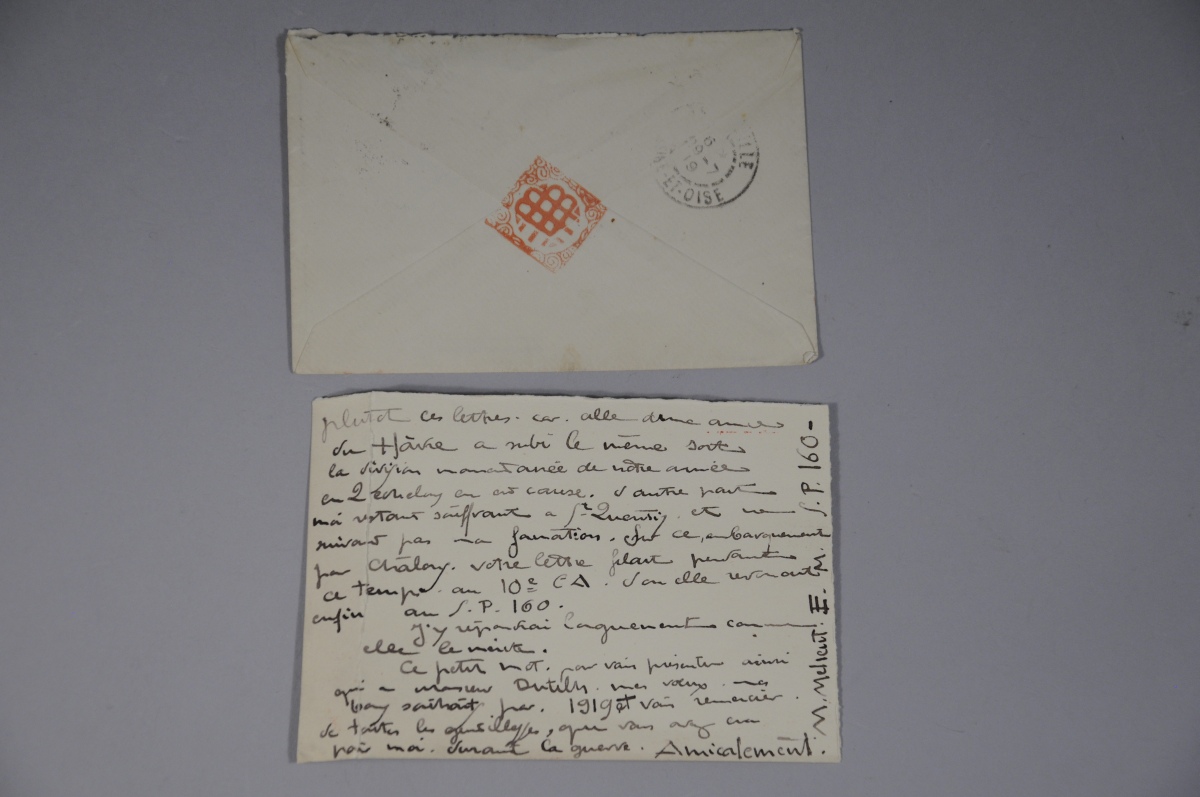 ILLE
ET-OISE
plutôt ces lettres. car. alle d'une amie
du Hâvre a subi le même sort
la division momentanée de notre armée
en 2 échelons en est cause. d'autre part
moi restant souffrant a St Quentin. et ne
suivant pas ma formation. Sur ce, embarquement
par Châlons. votre lettre filait pendant
ce temps. au 10e CA. d'ou elle revenait
enfin au S.P. 160.
J'y répondrai longuement comme
elle le mérite.
Ce petit mot. pour vous présenter ainsi
qu'a monsieur Dutilh. mes vœux. mes
bons souhaits par. 1919 et vous remercier.
de toutes les gentillesses, que vous avez eu
pour moi. durant la guerre. Amicalement.
M. E. M. S.P. 160-